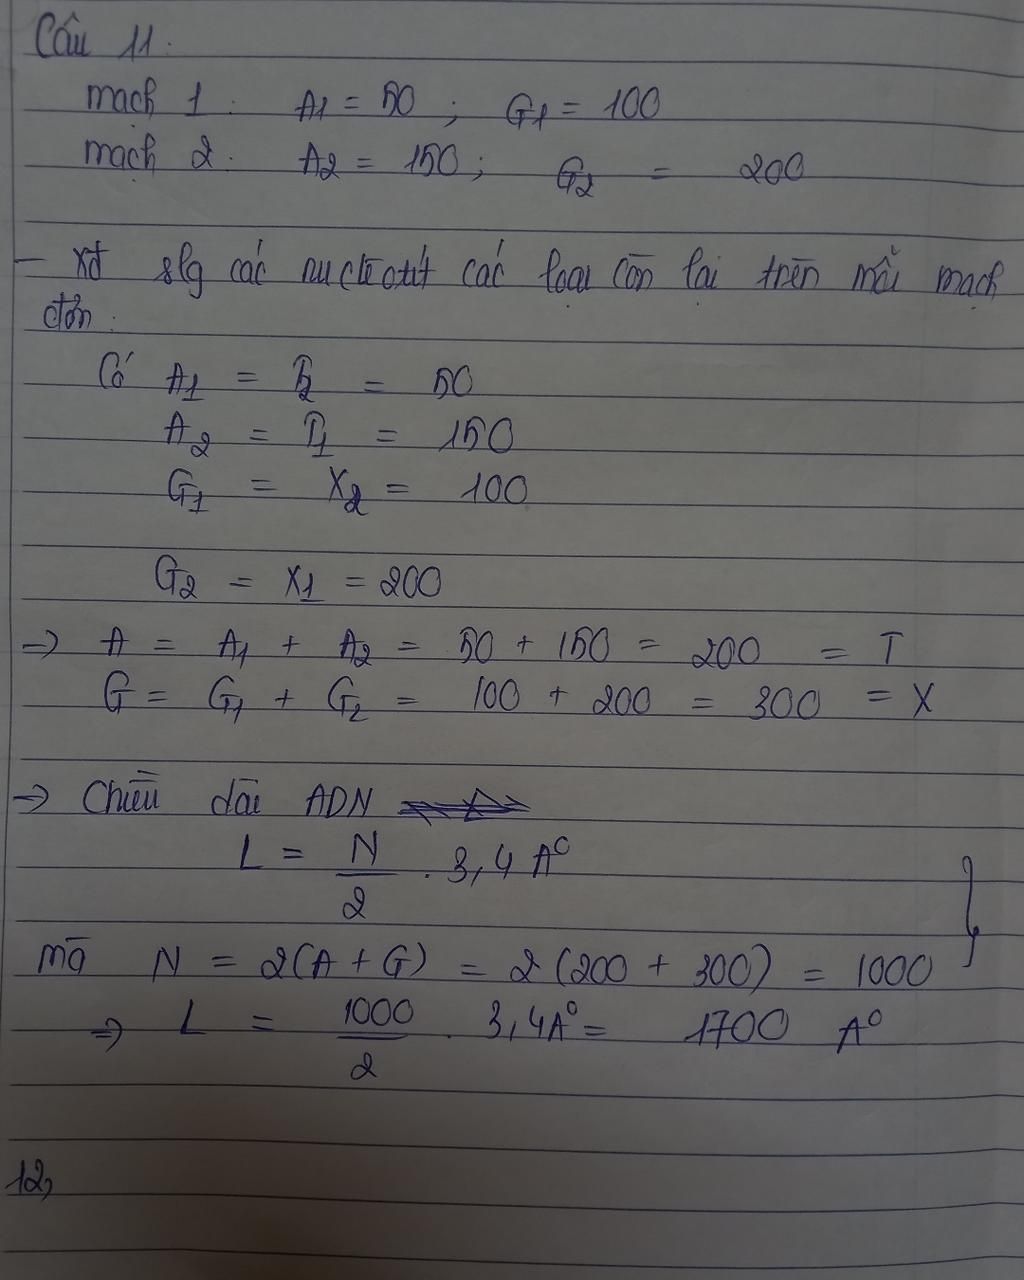 Câu 11:
mạch 1: A1 = 50 ; G1 = 100
mạch 2: A2 = 150 ; G2 = 200
- xđ slg các nuclêotit các loại còn lại trên mỗi mạch
đơn:
Có A1 = T2 = 50
A2 = T1 = 150
G1 = X2 = 100
G2 = X1 = 200
=> A = A1 + A2 = 50 + 150 = 200 = T
G = G1 + G2 = 100 + 200 = 300 = X
=> Chiều dài ADN
L = N/2 . 3,4 A°
mà N = 2(A + G) = 2(200 + 300) = 1000
=> L = 1000/2 . 3,4A° = 1700 A°
12,